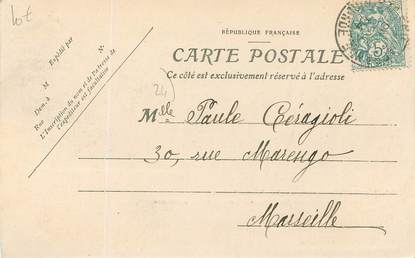 lot
RÉPUBLIQUE FRANÇAISE
CARTE POSTALE
Ce côté est exclusivement réservé à l'adresse
Expédié par
M
N°
Dem. à
Rue
L'inscription du nom et de l'adresse de
l'expéditeur est facultative
24
Mlle Paule Céragioli
30, rue Marengo
Marseille
5c